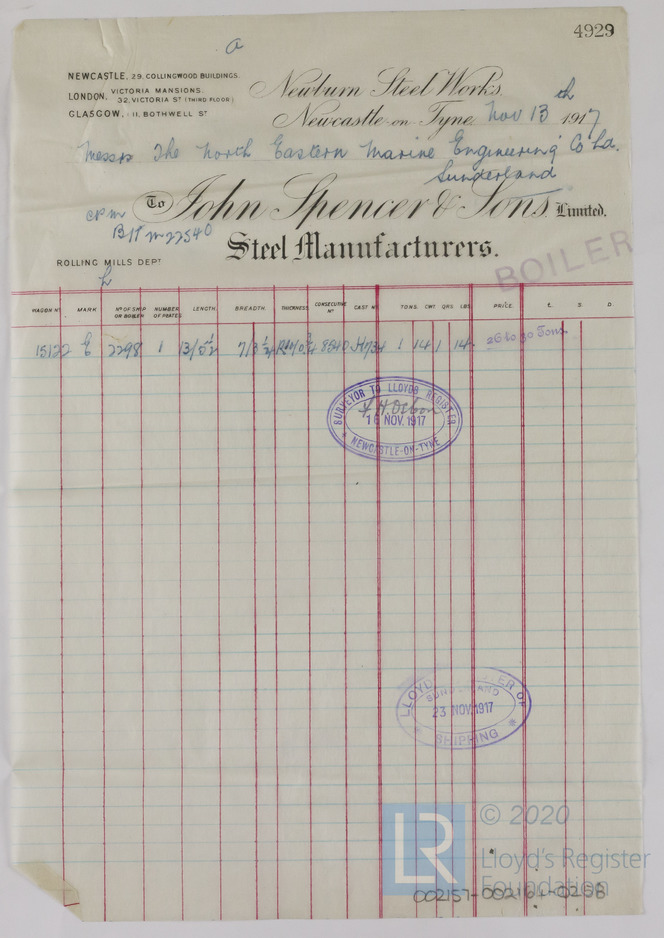 4929
a
NEWCASTLE, 29, COLLINGWOOD BUILDINGS.
LONDON, VICTORIA MANSIONS, 32, VICTORIA ST (THIRD FLOOR)
GLASGOW, 11, BOTHWELL ST
Newburn Steel Works,
Newcastle-on-Tyne, Nov 13th 1917
Messrs The North Eastern Marine Engineering Co Ld.
Sunderland
To John Spencer & Sons, Limited.
Steel Manufacturers.
ROLLING MILLS DEPT
BOILER
WAGON No MARK No OF SHIP OR BOILER NUMBER OF PLATES LENGTH. BREADTH. THICKNESS. CONSECUTIVE No CAST No TONS. CWT. QRS. LBS. PRICE. £ S D
15122 E 2298 1 13/5½ 1 14 1 14 26 to 30 Tons
SURVEYOR TO LLOYDS REGISTER
16 NOV. 1917
NEWCASTLE-ON-TYNE
LLOYD'S REGISTER OF
SUNDERLAND
23 NOV. 1917
SHIPPING
LR
© 2020
Lloyd's Register
Foundation
002157-002164-0258